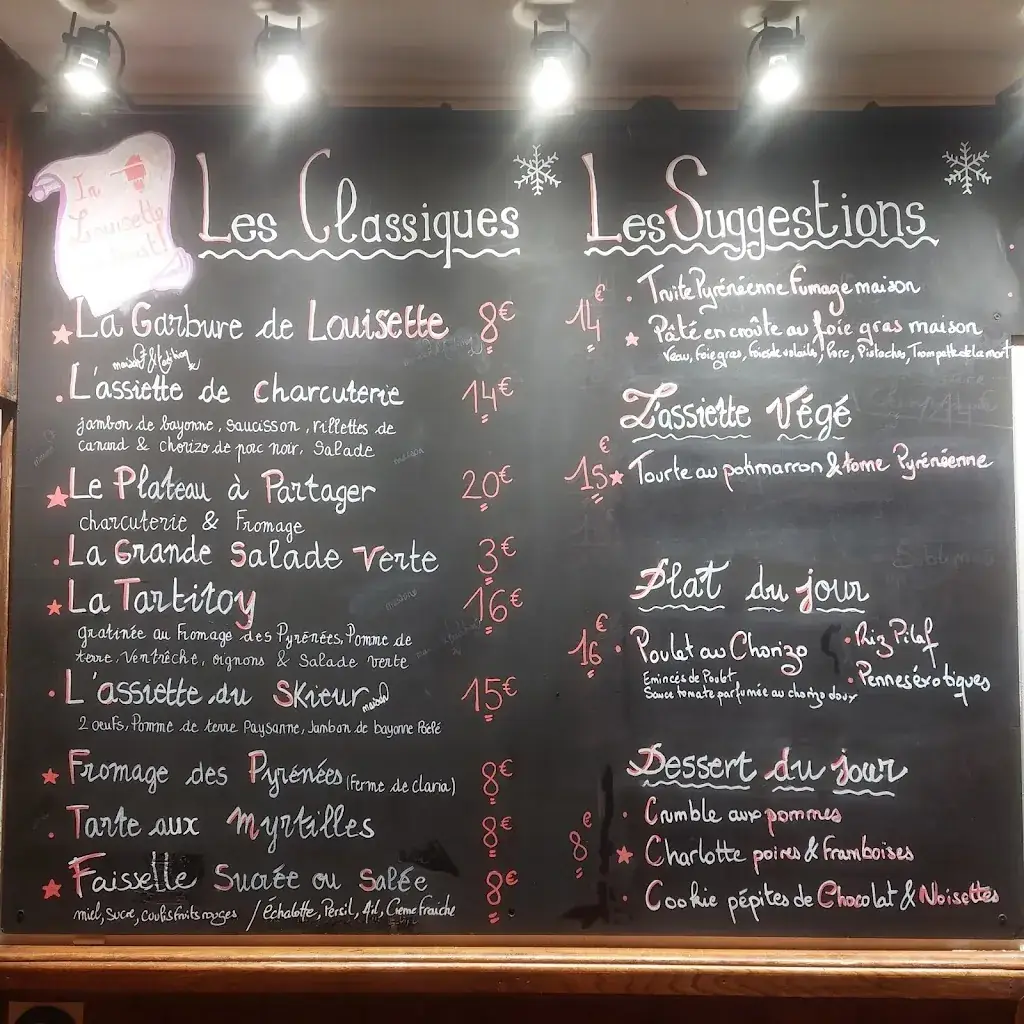 In
Louisette
Les Classiques
La Garbure de Louisette 8€
maison
L'assiette de charcuterie 14€
jambon de bayonne, saucisson, rillettes de
canard & chorizo de porc noir, Salade
Le Plateau à Partager 20€
charcuterie & Fromage
La Grande Salade Verte 3€
La Tartitoy 16€
gratinée au Fromage des Pyrénées, Pomme de
terre, Ventrêche, oignons & Salade verte
L'assiette du Skieur 15€
maison
2 oeufs, Pomme de terre Paysanne, Jambon de bayonne Poêlé
Fromage des Pyrénées (Ferme de claria) 8€
Tarte aux Myrtilles 8€
Faisselle Sucrée ou Salée 8€
miel, Sucre, Coulis fruits rouges / Échalotte, Persil, Ail, Crème Fraiche
Les Suggestions
14€
Truite Pyrénéenne Fumage maison
Pâté en croûte au foie gras maison
Veau, Foie gras, Foies de volaille, Porc, Pistaches, Trompette de la mort
L'assiette Végé
15€ Tourte au potimarron & tome Pyrénéenne
Plat du jour
16€ Poulet au Chorizo
Emincés de Poulet
Sauce tomate parfumée au chorizo doux
Riz Pilaf
Pennes éxotiques
Dessert du jour
8€
Crumble aux pommes
Charlotte poires & Framboises
Cookie pépites de Chocolat & Noisettes